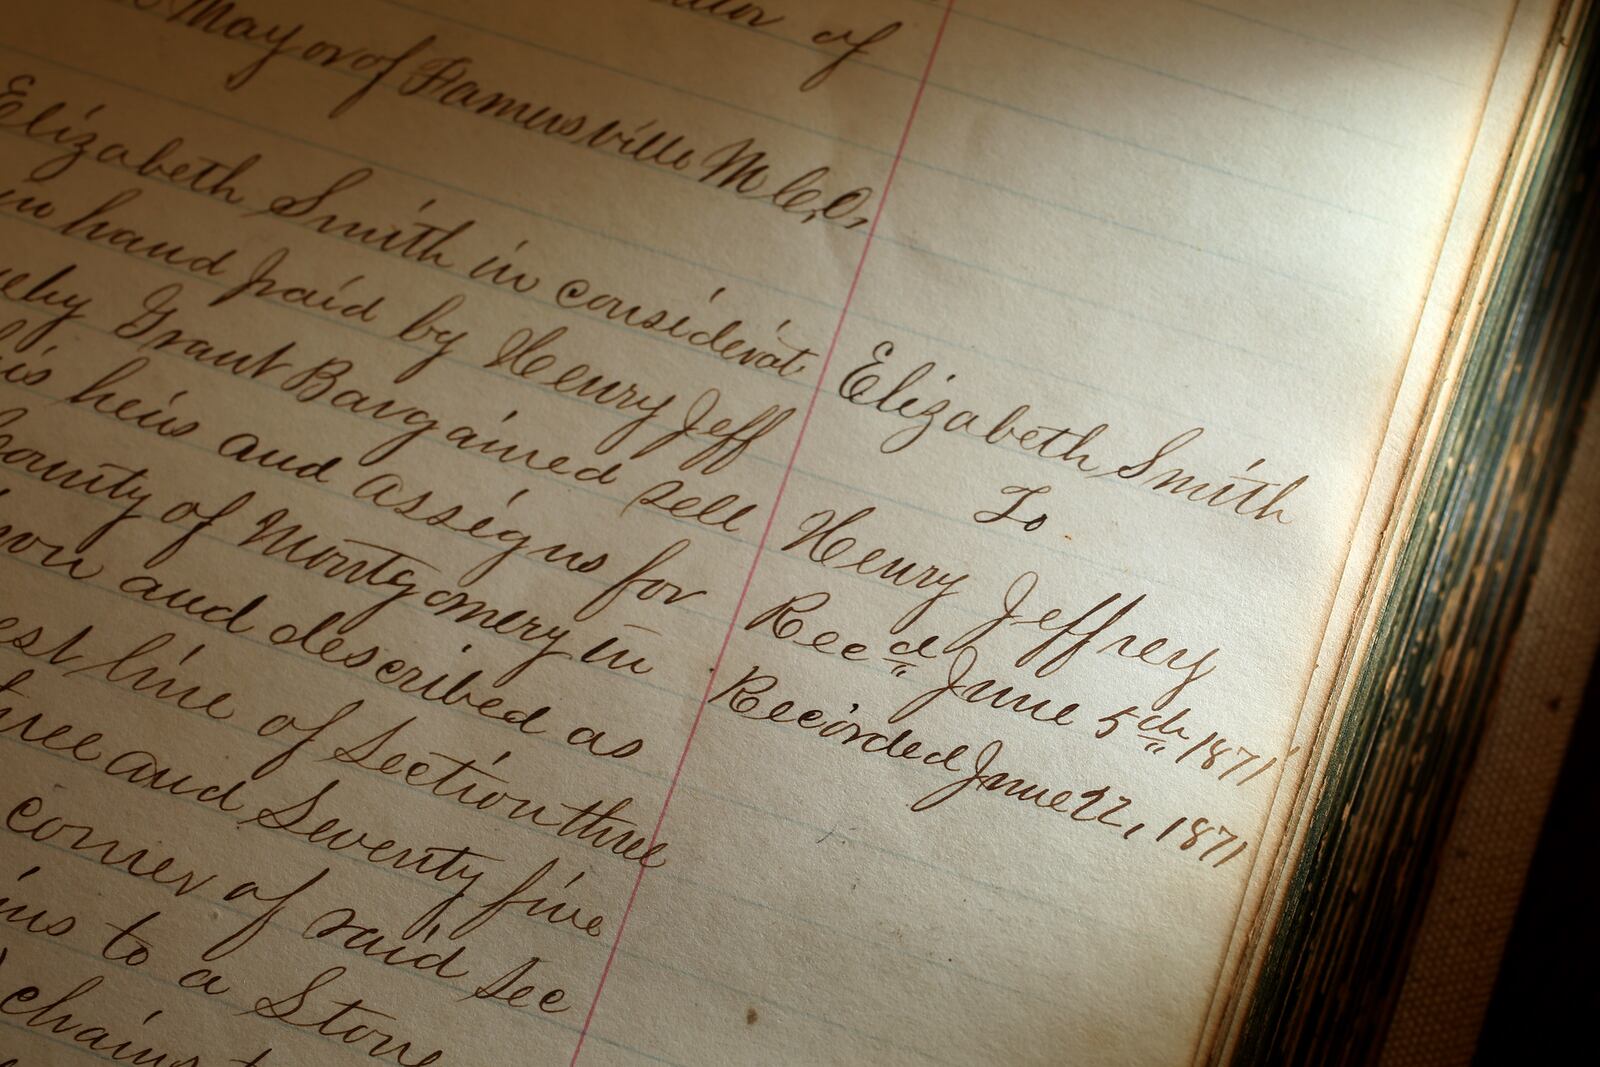 of
Mayor of Farmersville M.C.O,
Elizabeth Smith in considerat
in hand paid by Henry Jeff
Grant Bargained sell
his heirs and assigns for
County of Montgomery in
and described as
line of Section three
three and Seventy five
corner of said Sec
to a Stone
chains
Elizabeth Smith
To
Henry Jeffrey
Recd June 5th 1871
Recorded June 22, 1871